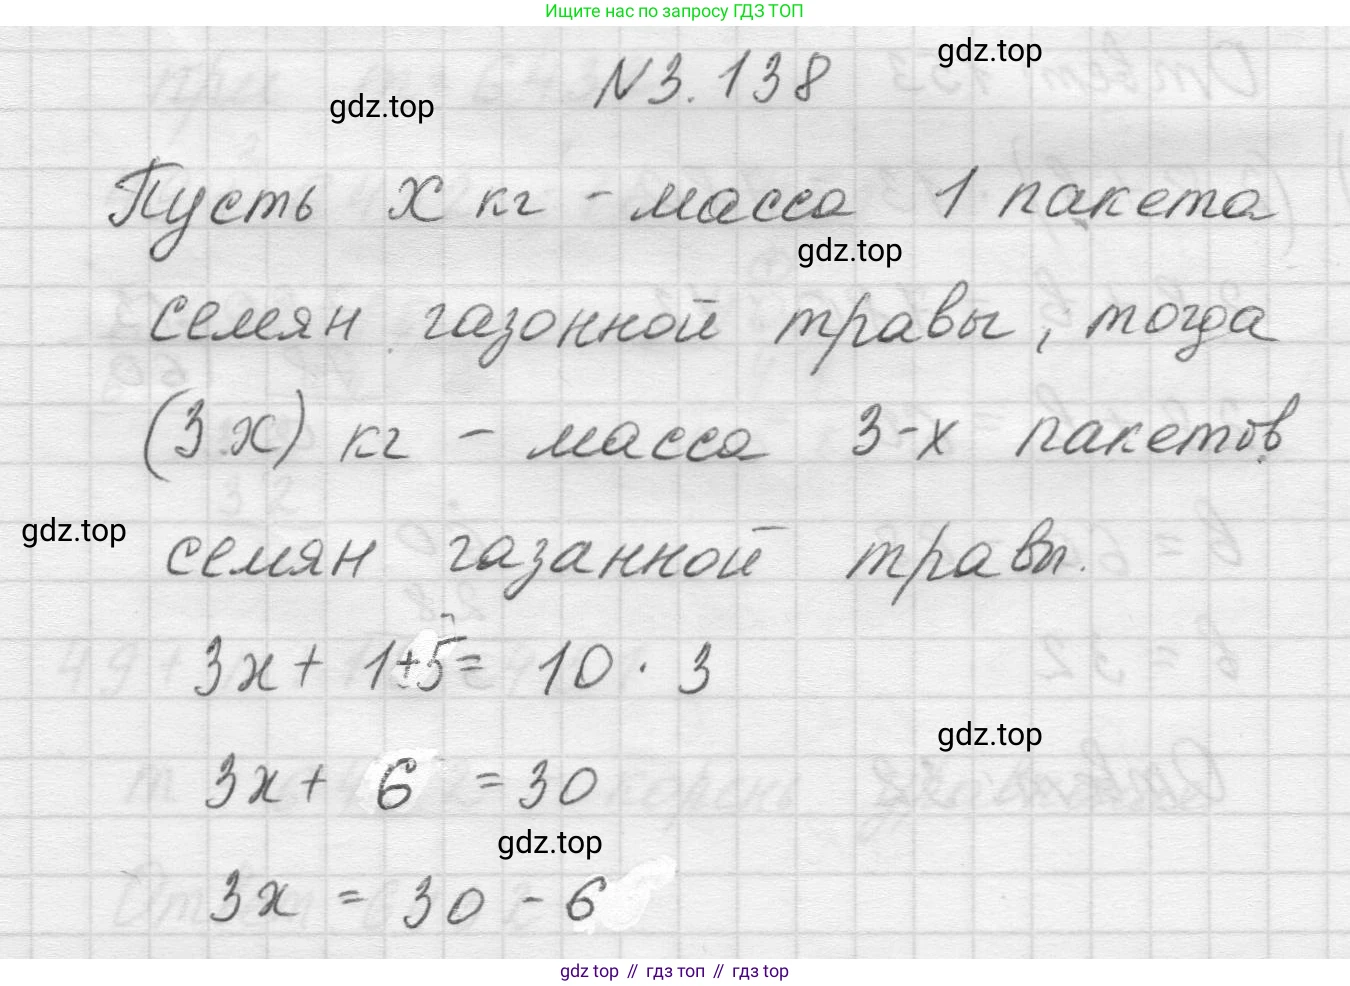 Ищите нас по запросу ГДЗ ТОП
gdz.top
N3.138
gdz.top
Пусть x кг - масса 1 пакета
gdz.top
семян газонной травы, тогда
(3x) кг - масса 3-х пакетов
gdz.top
семян газанной травы.
3x + 1+5 = 10 · 3
gdz.top
3x + 6 = 30
gdz.top
3x = 30 - 6
gdz top // гдз топ // гдз top